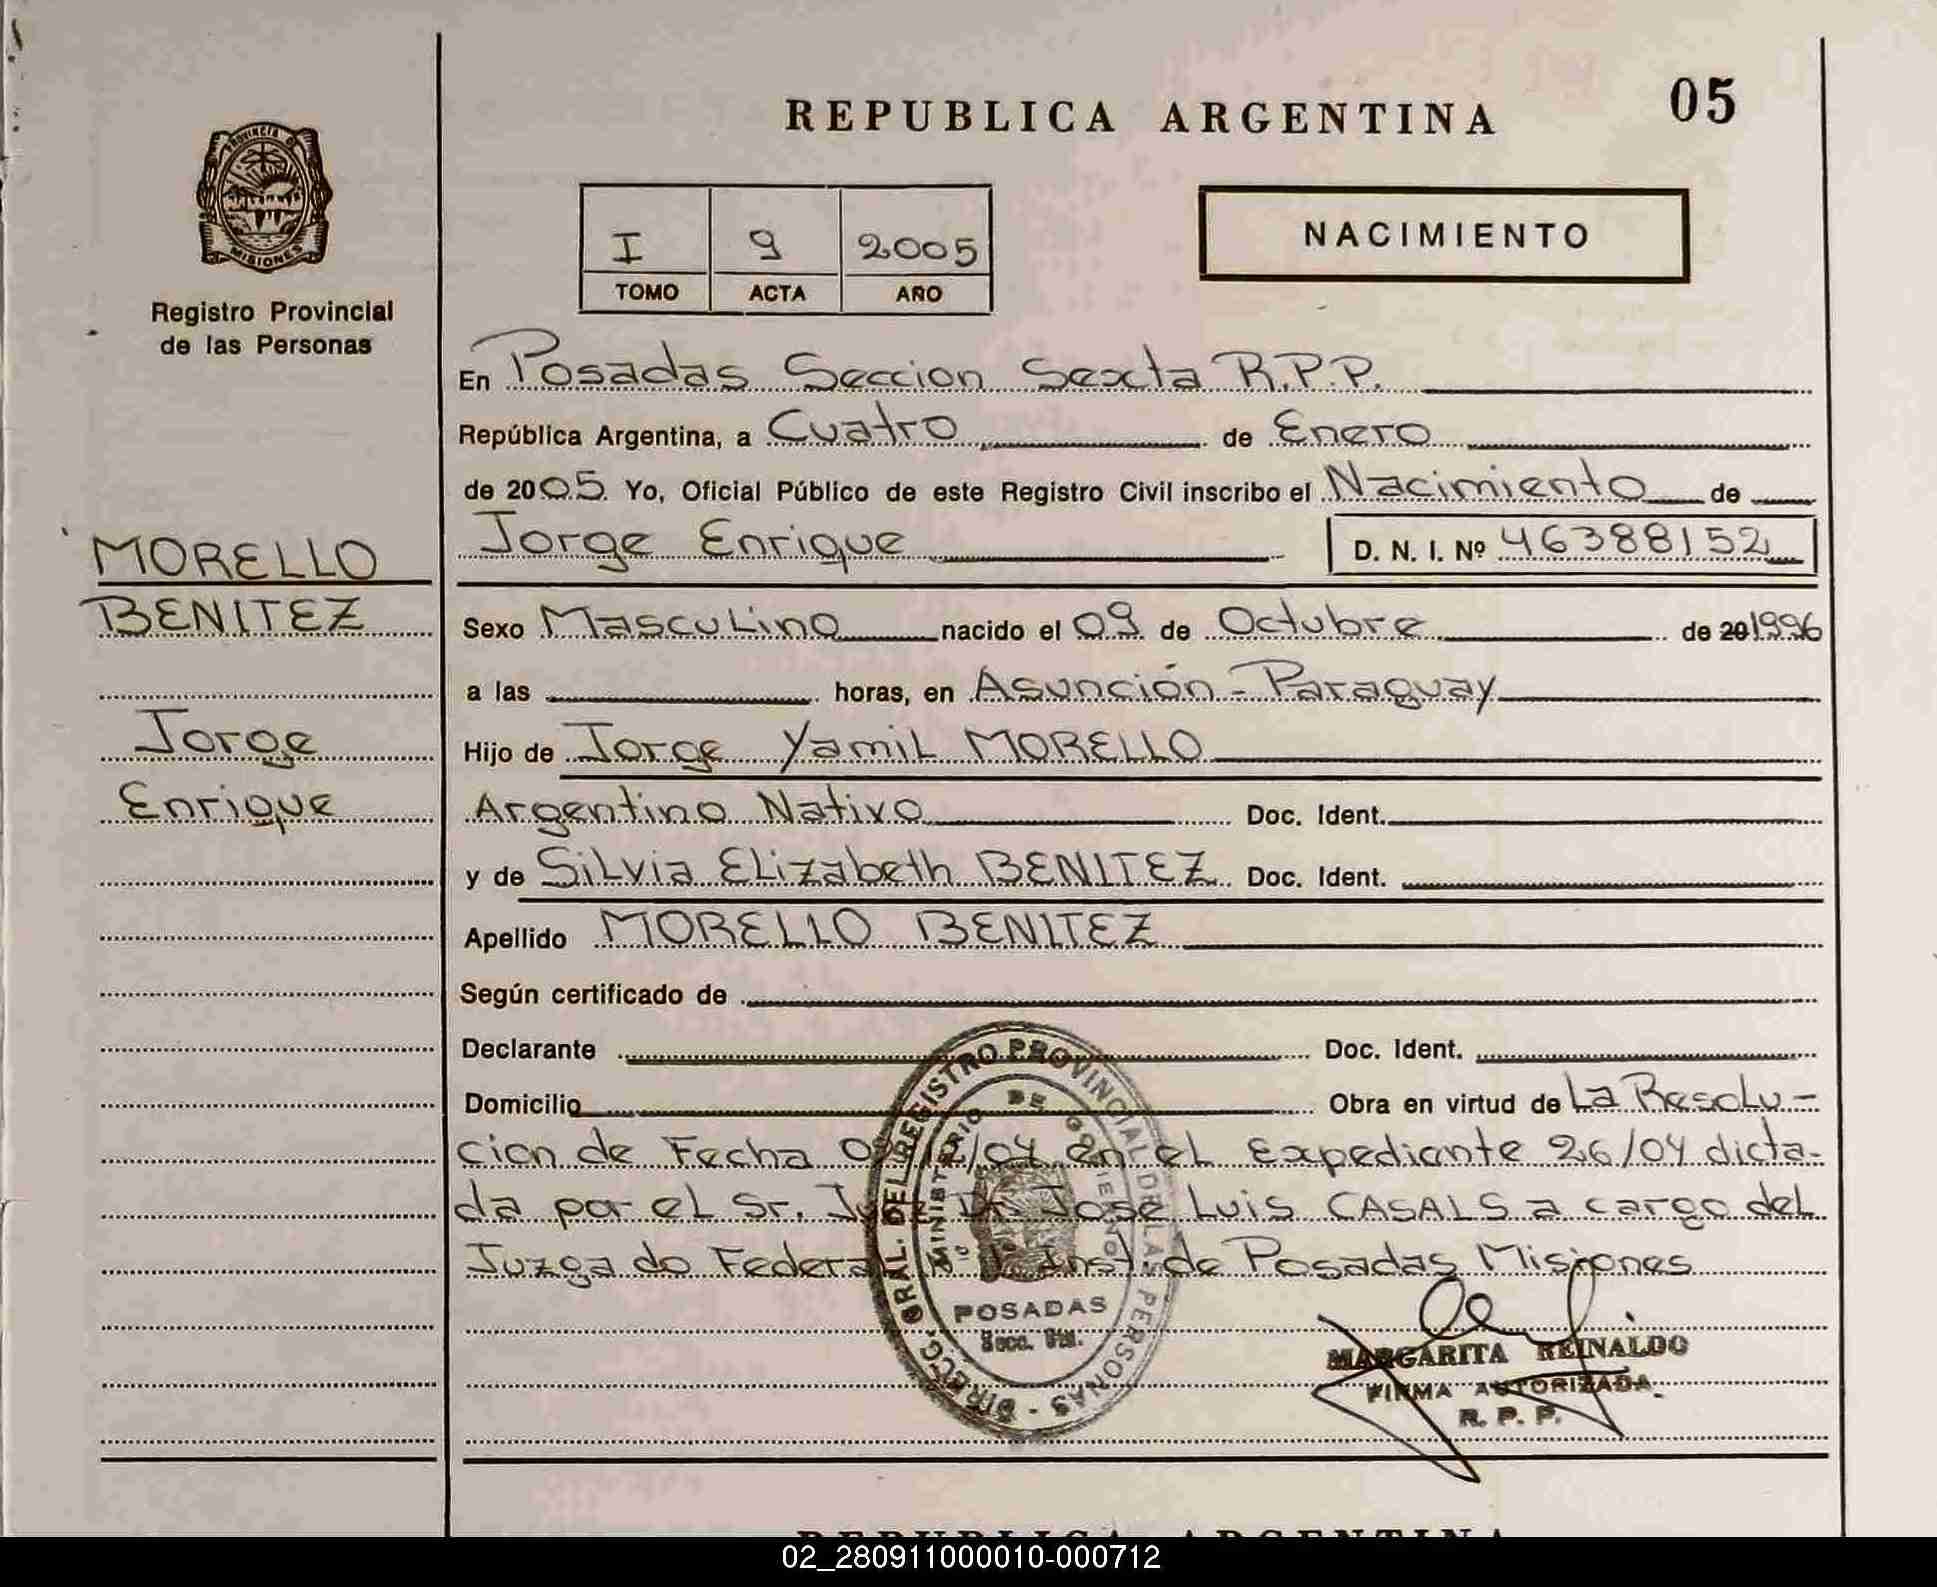 REPUBLICA ARGENTINA
05
PROVINCIA DE
MISIONES
Registro Provincial
de las Personas
I 9 2005
TOMO ACTA AÑO
NACIMIENTO
En Posadas Seccion Sexta R.P.P.
República Argentina, a Cuatro de Enero
de 2005. Yo, Oficial Público de este Registro Civil inscribo el Nacimiento de
Jorge Enrique D. N. I. Nº 46388152
MORELLO
BENITEZ
Jorge
Enrique
Sexo Masculino nacido el 09 de Octubre de 20 1996
a las horas, en Asunción - Paraguay
Hijo de Jorge Yamil MORELLO
Argentino Nativo Doc. Ident.
y de Silvia Elizabeth BENITEZ Doc. Ident.
Apellido MORELLO BENITEZ
Según certificado de
Declarante Doc. Ident.
Domicilio Obra en virtud de La Resolu-
cion de Fecha /12/04 en el Expediente 26/04 dicta-
da por el Sr. Juez Dr. Jose Luis CASALS a cargo del
Juzgado Federal Inst. de Posadas Misiones
DIRECC. GRAL. DEL REGISTRO PROVINCIAL DE LAS PERSONAS
MINISTERIO DE GOBIERNO
POSADAS
Secc. 6ta.
MARGARITA REINALDO
FIRMA AUTORIZADA
R. P. P.
REPUBLICA ARGENTINA
02_280911000010-000712